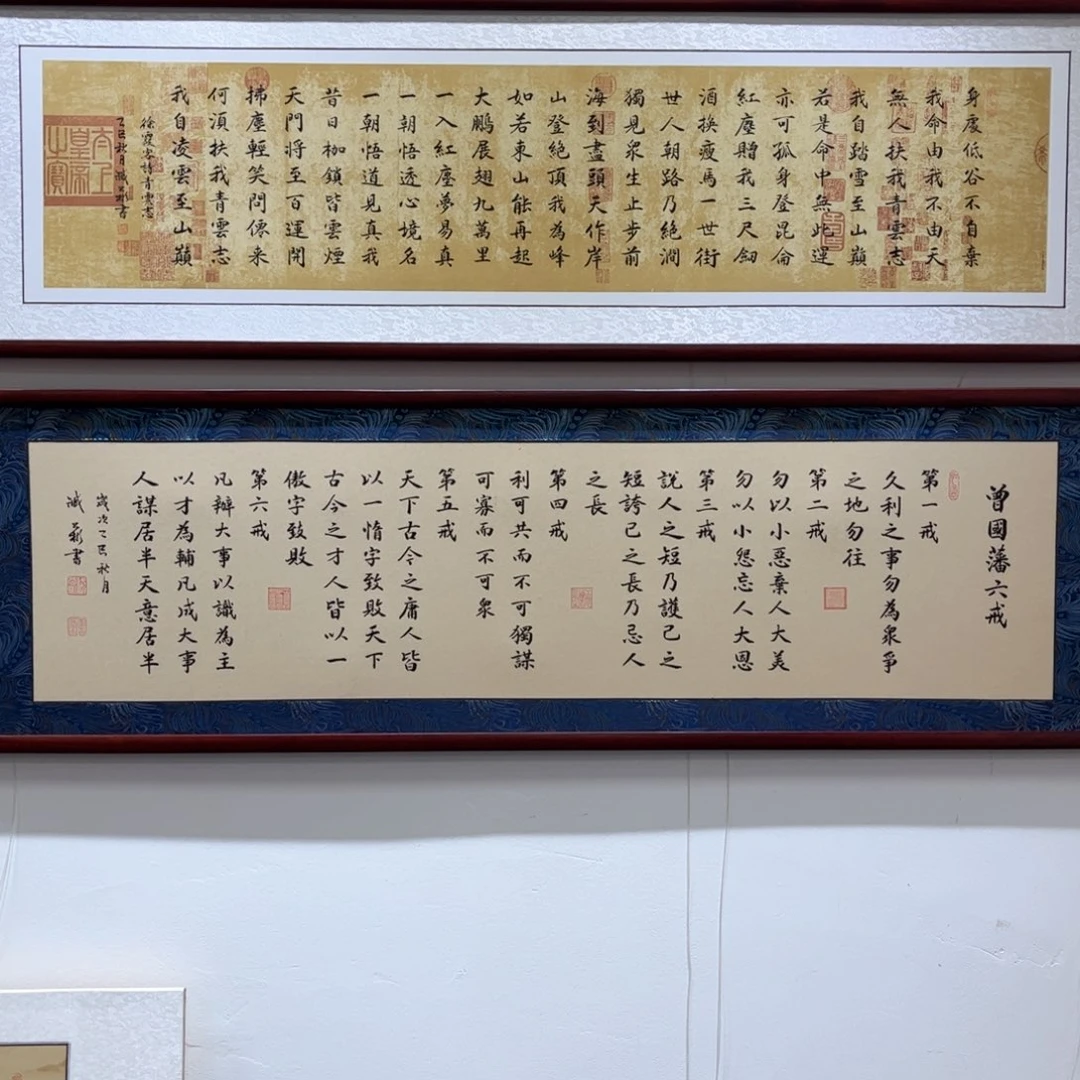 身處低谷不自棄
我命由我不由天
無人扶我青雲志
我自踏雪至山巔
若是命中無此運
亦可孤身登昆侖
紅塵贈我三尺劍
酒換瘦馬一世街
世人朝路乃絕澗
獨見眾生止步前
海到盡頭天作岸
山登絕頂我為峰
如若東山能再起
大鵬展翅九萬里
一入紅塵夢易真
一朝悟透心境名
一朝悟道見真我
昔日枷鎖皆雲煙
天門將至百運開
拂塵輕笑問儒來
何須扶我青雲志
我自凌雲至山巔
徐霞客詩青雲志
乙巳秋月
書
太上皇帝之寶
曾國藩六戒
第一戒
久利之事勿為眾爭
之地勿往
第二戒
勿以小惡棄人大美
勿以小怨忘人大恩
第三戒
說人之短乃護己之
短誇己之長乃忌人
之長
第四戒
利可共而不可獨謀
可寡而不可眾
第五戒
天下古今之庸人皆
以一惰字致敗天下
古今之才人皆以一
傲字致敗
第六戒
凡辦大事以識為主
以才為輔凡成大事
人謀居半天意居半
歲次乙巳秋月
書